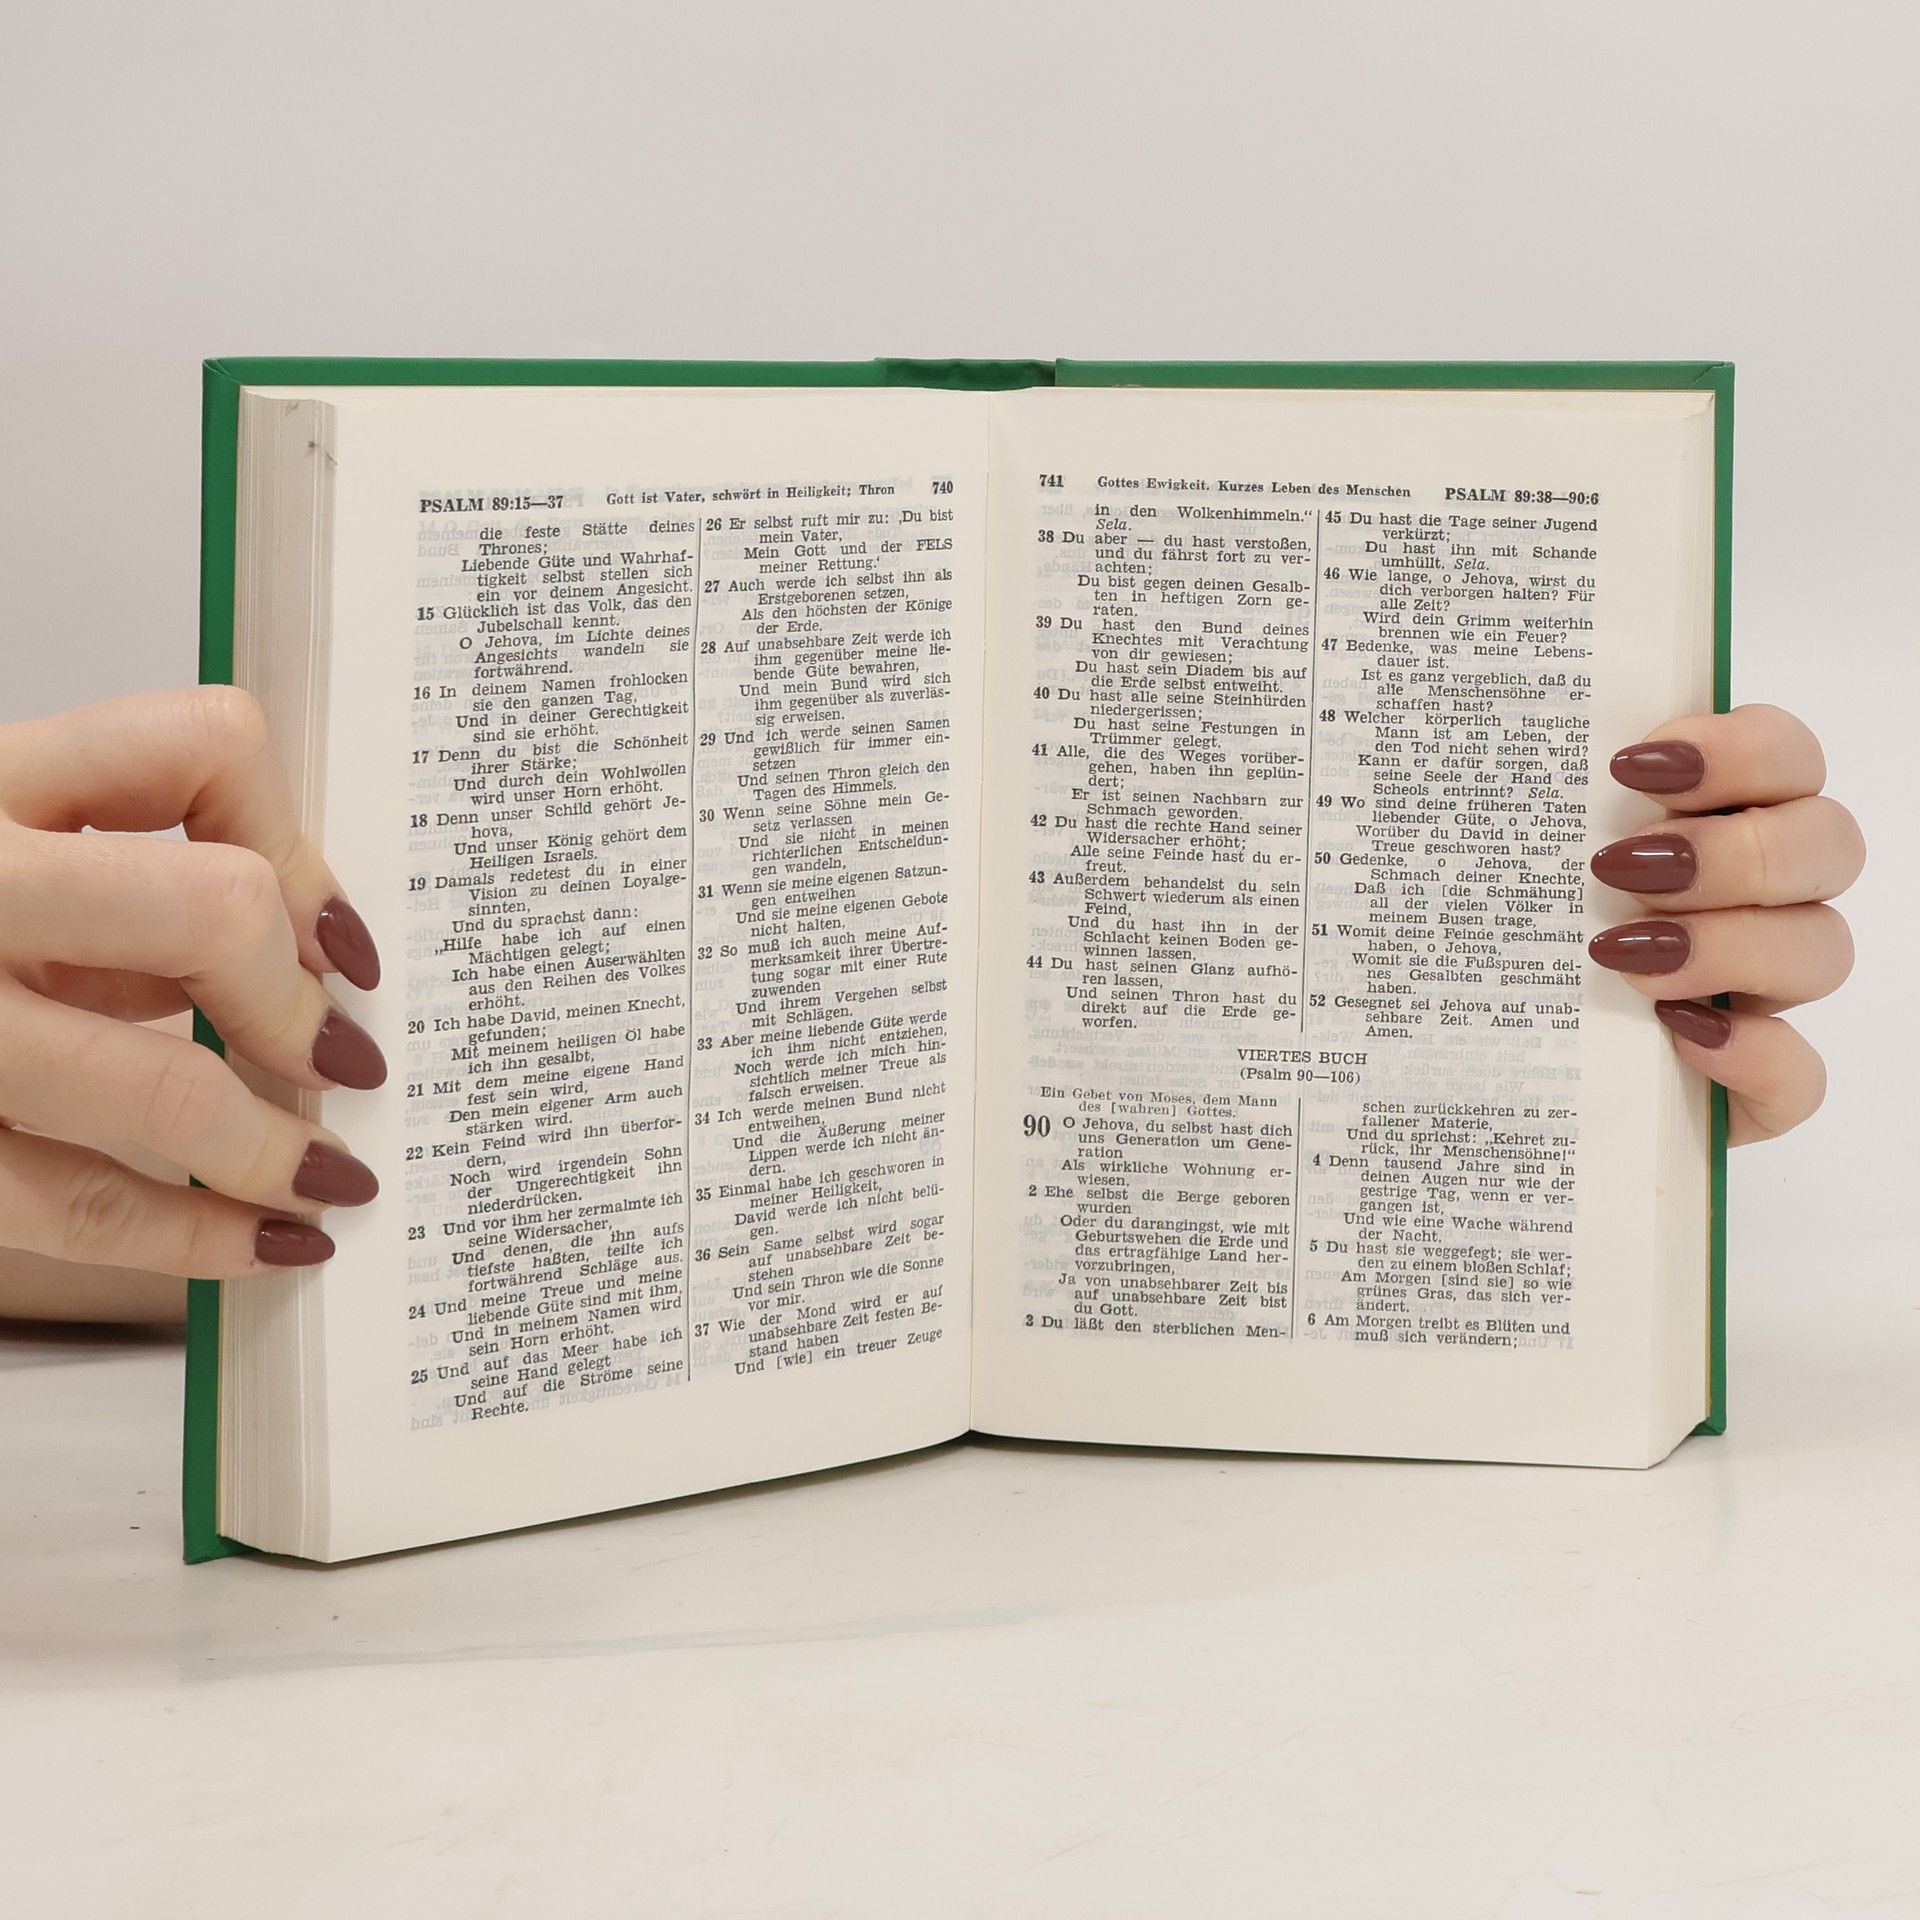 PSALM 89:15—37 Gott ist Vater, schwört in Heiligkeit; Thron 740
die feste Stätte deines
Thrones;
Liebende Güte und Wahrhaf-
tigkeit selbst stellen sich
ein vor deinem Angesicht.
15 Glücklich ist das Volk, das den
Jubelschall kennt.
O Jehova, im Lichte deines
Angesichts wandeln sie
fortwährend.
16 In deinem Namen frohlocken
sie den ganzen Tag,
Und in deiner Gerechtigkeit
sind sie erhöht.
17 Denn du bist die Schönheit
ihrer Stärke;
Und durch dein Wohlwollen
wird unser Horn erhöht.
18 Denn unser Schild gehört Je-
hova,
Und unser König gehört dem
Heiligen Israels.
19 Damals redetest du in einer
Vision zu deinen Loyalge-
sinnten,
Und du sprachst dann:
„Hilfe habe ich auf einen
Mächtigen gelegt;
Ich habe einen Auserwählten
aus den Reihen des Volkes
erhöht.
20 Ich habe David, meinen Knecht,
gefunden;
Mit meinem heiligen Öl habe
ich ihn gesalbt,
21 Mit dem meine eigene Hand
fest sein wird,
Den mein eigener Arm auch
stärken wird.
22 Kein Feind wird ihn überfor-
dern,
Noch wird irgendein Sohn
der Ungerechtigkeit ihn
niederdrücken.
23 Und vor ihm her zermalmte ich
seine Widersacher,
Und denen, die ihn aufs
tiefste haßten, teilte ich
fortwährend Schläge aus.
24 Und meine Treue und meine
liebende Güte sind mit ihm,
Und in meinem Namen wird
sein Horn erhöht.
25 Und auf das Meer habe ich
seine Hand gelegt
Und auf die Ströme seine
Rechte.
26 Er selbst ruft mir zu: ‚Du bist
mein Vater,
Mein Gott und der FELS
meiner Rettung.‘
27 Auch werde ich selbst ihn als
Erstgeborenen setzen,
Als den höchsten der Könige
der Erde.
28 Auf unabsehbare Zeit werde ich
ihm gegenüber meine lie-
bende Güte bewahren,
Und mein Bund wird sich
ihm gegenüber als zuverläs-
sig erweisen.
29 Und ich werde seinen Samen
gewißlich für immer ein-
setzen
Und seinen Thron gleich den
Tagen des Himmels.
30 Wenn seine Söhne mein Ge-
setz verlassen
Und sie nicht in meinen
richterlichen Entscheidun-
gen wandeln,
31 Wenn sie meine eigenen Satzun-
gen entweihen
Und sie meine eigenen Gebote
nicht halten,
32 So muß ich auch meine Auf-
merksamkeit ihrer Übertre-
tung sogar mit einer Rute
zuwenden
Und ihrem Vergehen selbst
mit Schlägen.
33 Aber meine liebende Güte werde
ich ihm nicht entziehen,
Noch werde ich mich hin-
sichtlich meiner Treue als
falsch erweisen.
34 Ich werde meinen Bund nicht
entweihen,
Und die Äußerung meiner
Lippen werde ich nicht än-
dern.
35 Einmal habe ich geschworen in
meiner Heiligkeit,
David werde ich nicht belü-
gen.
36 Sein Same selbst wird sogar
auf unabsehbare Zeit be-
stehen
Und sein Thron wie die Sonne
vor mir.
37 Wie der Mond wird er auf
unabsehbare Zeit festen Be-
stand haben
Und [wie] ein treuer Zeuge
741 Gottes Ewigkeit. Kurzes Leben des Menschen PSALM 89:38—90:6
in den Wolkenhimmeln.“
Sela.
38 Du aber — du hast verstoßen,
und du fährst fort zu ver-
achten;
Du bist gegen deinen Gesalb-
ten in heftigen Zorn ge-
raten.
39 Du hast den Bund deines
Knechtes mit Verachtung
von dir gewiesen;
Du hast sein Diadem bis auf
die Erde selbst entweiht.
40 Du hast alle seine Steinhürden
niedergerissen;
Du hast seine Festungen in
Trümmer gelegt.
41 Alle, die des Weges vorüber-
gehen, haben ihn geplün-
dert;
Er ist seinen Nachbarn zur
Schmach geworden.
42 Du hast die rechte Hand seiner
Widersacher erhöht;
Alle seine Feinde hast du er-
freut.
43 Außerdem behandelst du sein
Schwert wiederum als einen
Feind,
Und du hast ihn in der
Schlacht keinen Boden ge-
winnen lassen,
44 Du hast seinen Glanz aufhö-
ren lassen,
Und seinen Thron hast du
direkt auf die Erde ge-
worfen.
45 Du hast die Tage seiner Jugend
verkürzt;
Du hast ihn mit Schande
umhüllt. Sela.
46 Wie lange, o Jehova, wirst du
dich verborgen halten? Für
alle Zeit?
Wird dein Grimm weiterhin
brennen wie ein Feuer?
47 Bedenke, was meine Lebens-
dauer ist.
Ist es ganz vergeblich, daß du
alle Menschensöhne er-
schaffen hast?
48 Welcher körperlich taugliche
Mann ist am Leben, der
den Tod nicht sehen wird?
Kann er dafür sorgen, daß
seine Seele der Hand des
Scheols entrinnt? Sela.
49 Wo sind deine früheren Taten
liebender Güte, o Jehova,
Worüber du David in deiner
Treue geschworen hast?
50 Gedenke, o Jehova, der
Schmach deiner Knechte,
Daß ich [die Schmähung]
all der vielen Völker in
meinem Busen trage,
51 Womit deine Feinde geschmäht
haben, o Jehova,
Womit sie die Fußspuren dei-
nes Gesalbten geschmäht
haben.
52 Gesegnet sei Jehova auf unab-
sehbare Zeit. Amen und
Amen.
VIERTES BUCH
(Psalm 90—106)
Ein Gebet von Moses, dem Mann
des [wahren] Gottes.
90 O Jehova, du selbst hast dich
uns Generation um Gene-
ration
Als wirkliche Wohnung er-
wiesen.
2 Ehe selbst die Berge geboren
wurden
Oder du darangingst, wie mit
Geburtswehen die Erde und
das ertragfähige Land her-
vorzubringen,
Ja von unabsehbarer Zeit bis
auf unabsehbare Zeit bist
du Gott.
3 Du läßt den sterblichen Men-
schen zurückkehren zu zer-
fallener Materie,
Und du sprichst: „Kehret zu-
rück, ihr Menschensöhne!“
4 Denn tausend Jahre sind in
deinen Augen nur wie der
gestrige Tag, wenn er ver-
gangen ist,
Und wie eine Wache während
der Nacht.
5 Du hast sie weggefegt; sie wer-
den zu einem bloßen Schlaf;
Am Morgen [sind sie] so wie
grünes Gras, das sich ver-
ändert.
6 Am Morgen treibt es Blüten und
muß sich verändern;